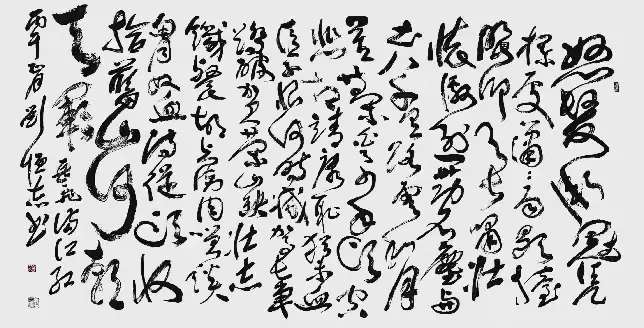 怒髮衝冠憑
欄處瀟瀟雨歇抬
望眼仰天長嘯壯
懷激烈三十功名塵與
土八千里路雲和月
莫等閑白了少年頭空
悲切靖康恥猶未雪
臣子恨何時滅駕長車
踏破賀蘭山缺壯志
饑餐胡虜肉笑談
渴飲匈奴血待從頭收
拾舊山河朝
天闕 岳飛滿江紅
丙午 劉恒志書